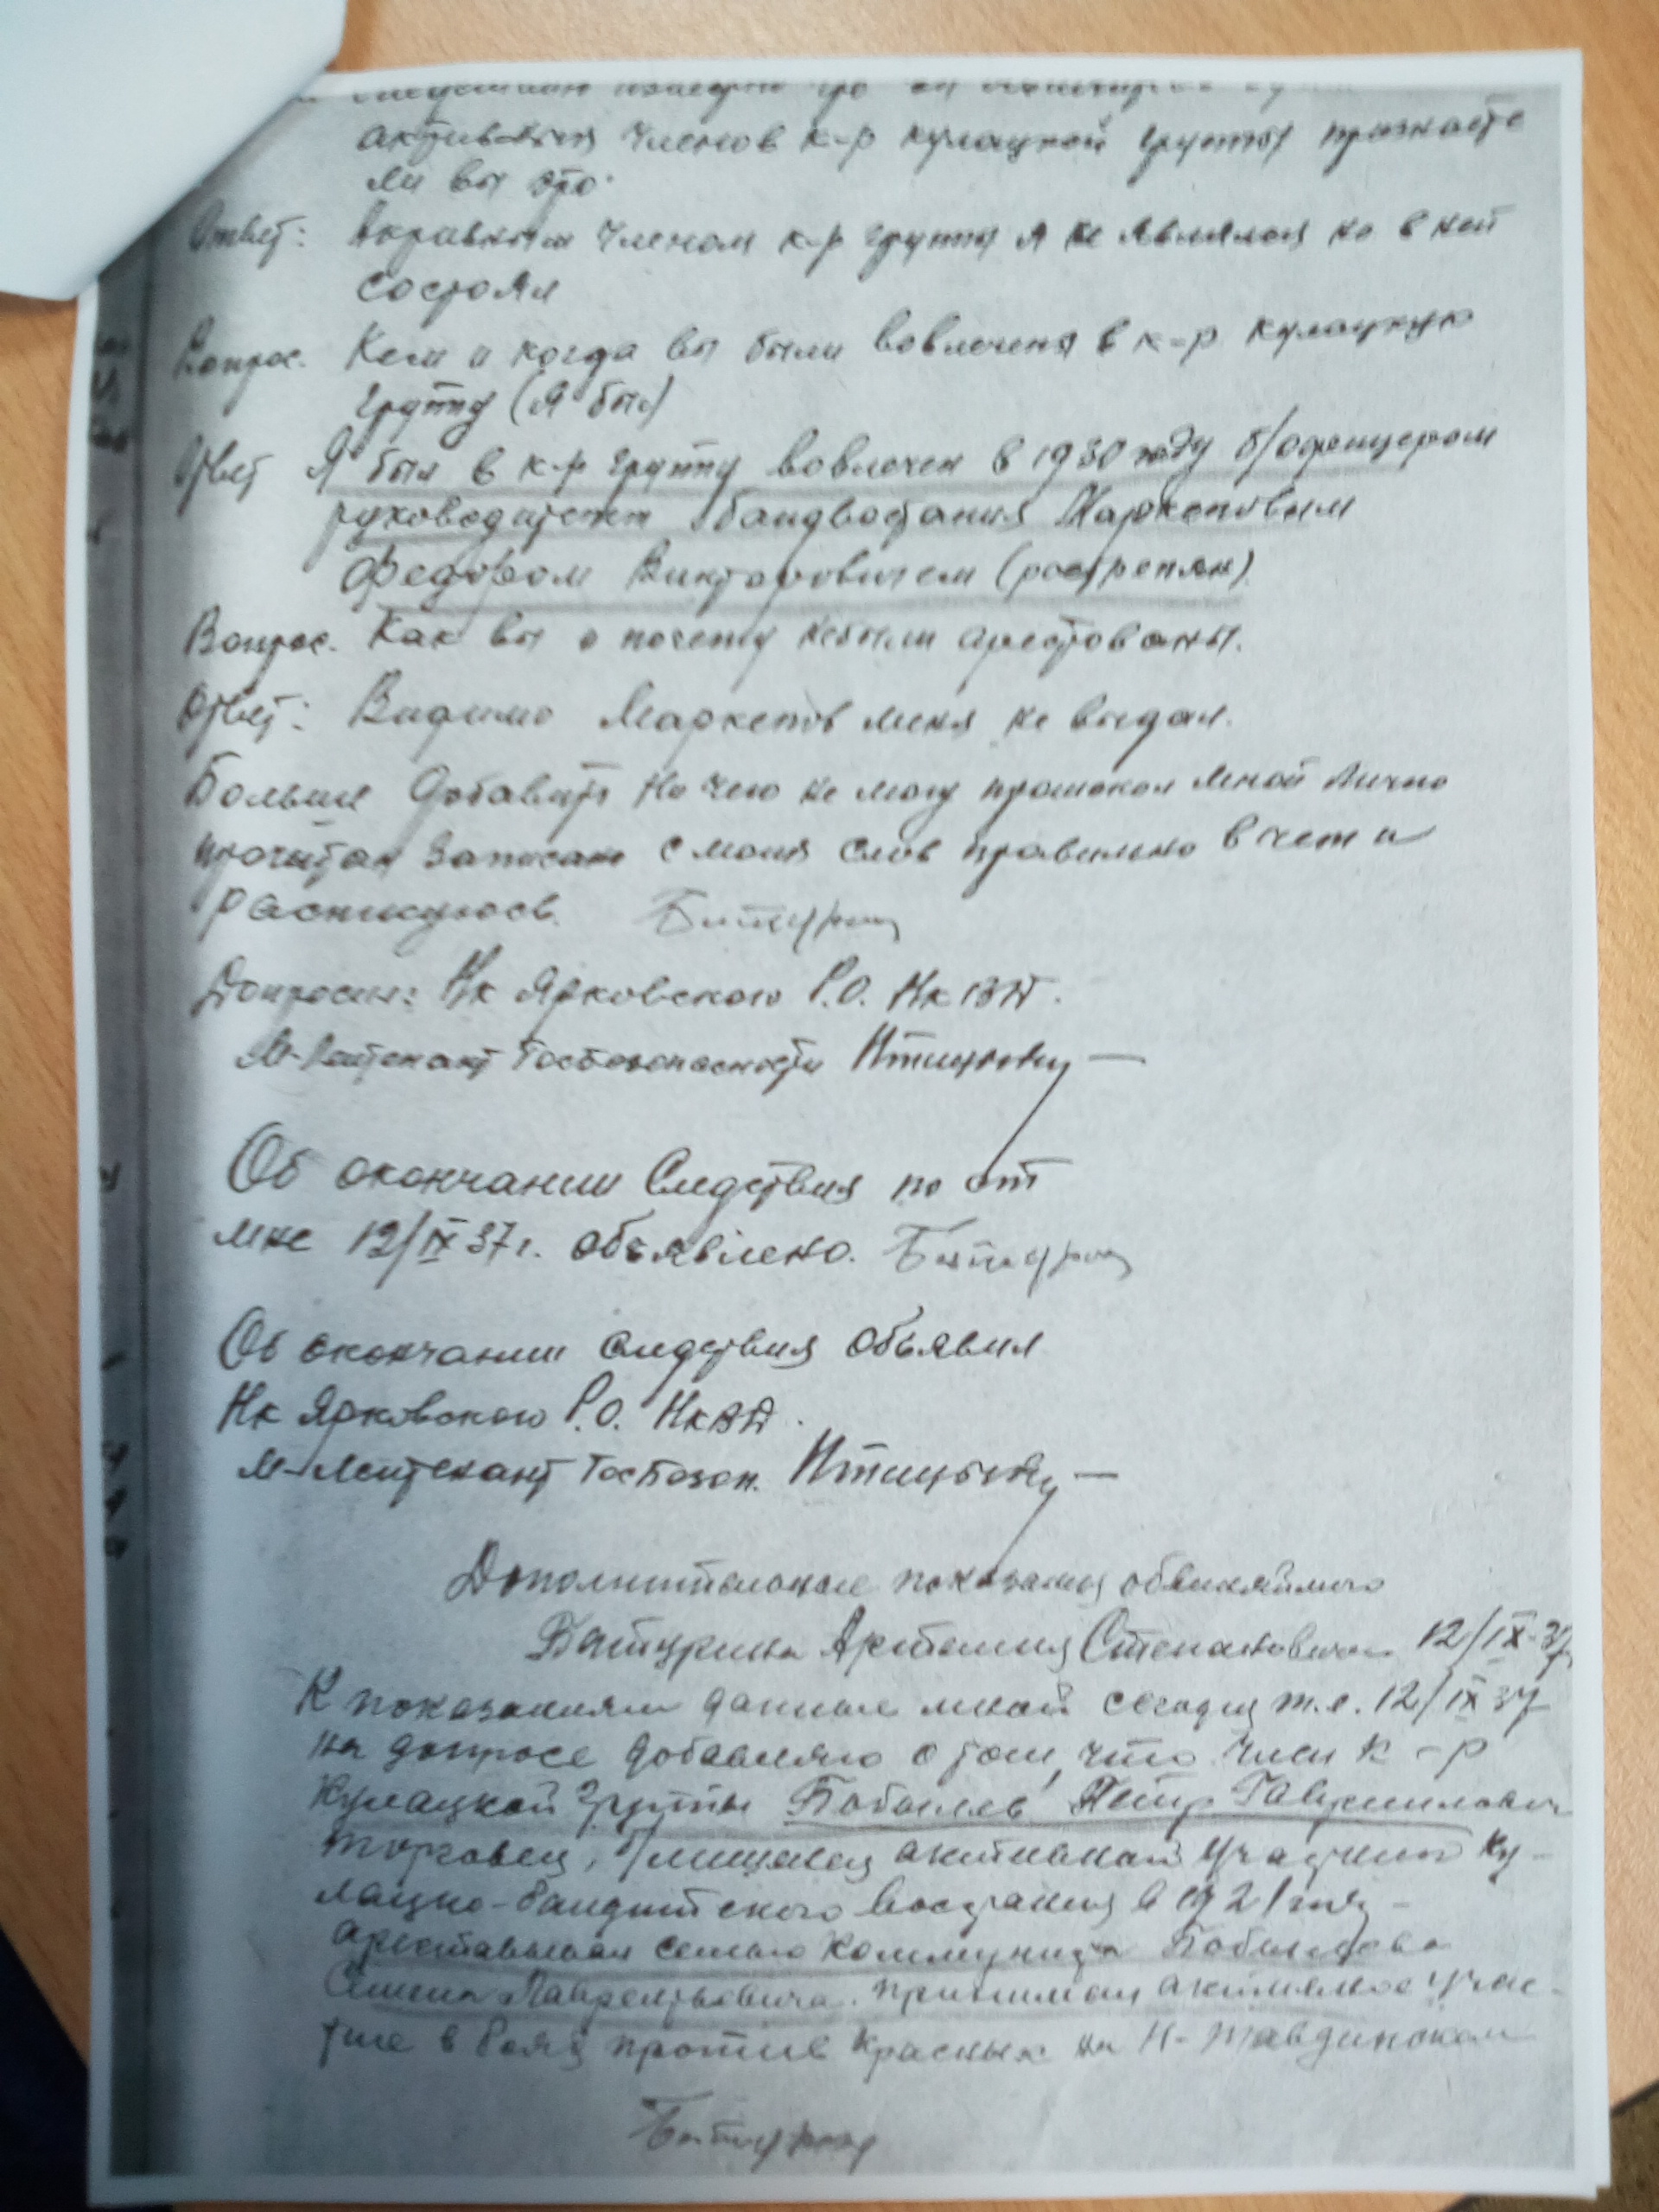 активных членов к-р кулацкой группы признаете
ли вы это.
Ответ: Активным членом к-р группы я не являлся но в ней
состоял
Вопрос. Кем и когда вы были вовлечены в к-р кулацкую
группу (я был)
Ответ Я был в к-р группу вовлечен в 1930 году б/офицером
руководителем бандвостания Маркеловым
Федором Викторовичем (росстрелян)
Вопрос. Как вы и почему небыли арестованы.
Ответ: Видимо Маркелов меня не выдал.
Больше добавить ни чего не могу протокол мной лично
прочитан записан с моих слов правильно в чем и
распишуюсь. Батурин
Допросил: Нк Ярковского Р.О. НКВД.
М-Лейтенант Госбезопасности
Об окончании следствия по от
мне 12/IX 37 г. объявлено. Батурин
Об окончании следствия объявил
Нк Ярковского Р.О. НКВД.
М-Лейтенант Госбезоп.
Дополнительные показания обвиняймого
Батурина Артемия Степановича 12/IX-37
К показаниям данные мной сегодня т.е. 12/IX 37
на допросе добавляю о том, что член к-р
кулацкой группы Бобылев Петр Гаврилович
торговец, б/лишенец активный участник ку-
лацко-бандитского восстания в 1921 году -
арестовывал семью коммуниста Бобылева
Лаврентьевича. принимал активное учас-
тие в боях против красных на Н-Тавдинском
Батурин